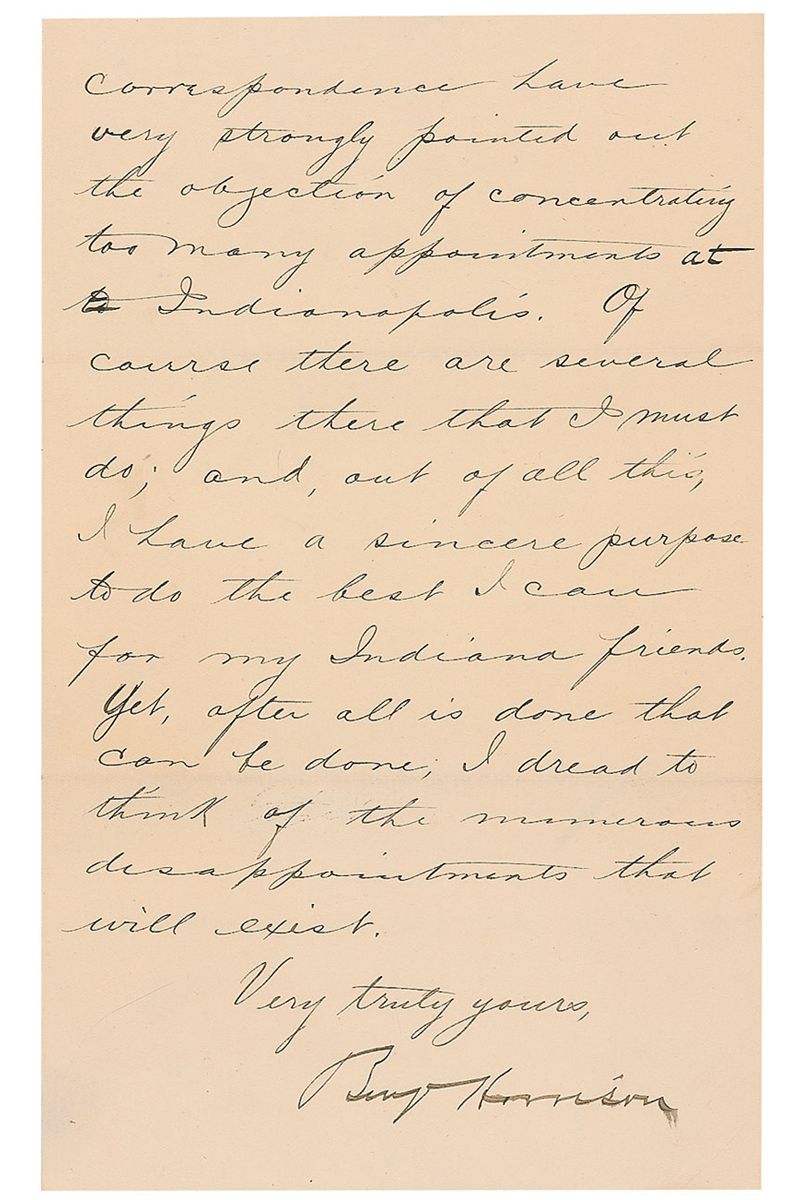 correspondence have
very strongly pointed out
the objection of concentrating
too many appointments at
Indianapolis. Of
course there are several
things there that I must
do; and, out of all this,
I have a sincere purpose
to do the best I can
for my Indiana friends.
Yet, after all is done that
can be done, I dread to
think of the numerous
disappointments that
will exist.
Very truly yours,
Benj Harrison